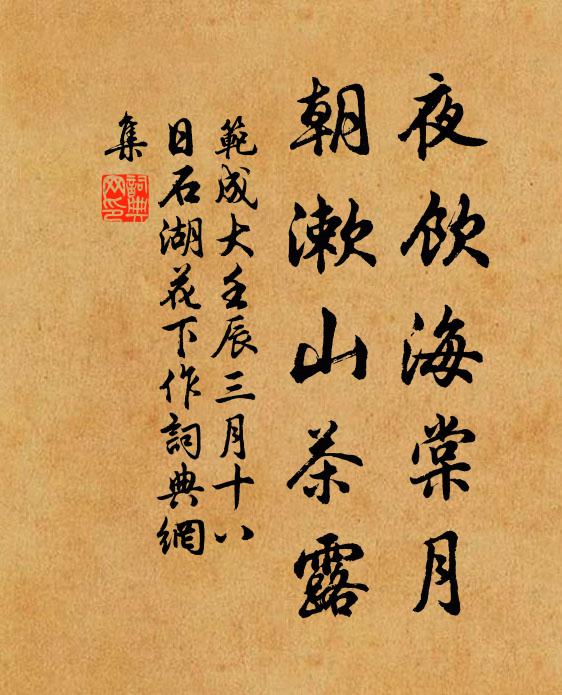 夜飲海棠月
朝漱山茶露
範成大壬辰三月十八
日石湖花下作詞典網
集
詞典
网印